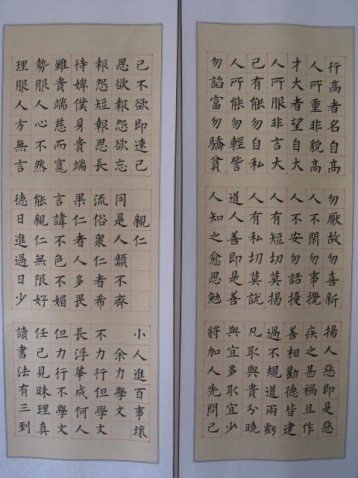 行高者名自高
人所重非貌高
才大者望自大
人所服非言大
己有能勿自私
人所能勿輕訾
勿諂富勿驕貧
勿厭故勿喜新
人不閑勿事攪
人不安勿話擾
人有短切莫揭
人有私切莫說
道人善即是善
人知之愈思勉
揚人惡即是惡
疾之甚禍且作
善相勸德皆建
過不規道兩虧
凡取與貴分曉
與宜多取宜少
將加人先問己
己不欲即速已
恩欲報怨欲忘
報怨短報恩長
待婢僕身貴端
雖貴端慈而寬
勢服人心不然
理服人方無言
親仁
同是人類不齊
流俗衆仁者希
果仁者人多畏
言諱不色不媚
能親仁無限好
德日進過日少
小人進百事壞
余力學文
不力行但學文
長浮華成何人
但力行不學文
任己見昧理真
讀書法有三到